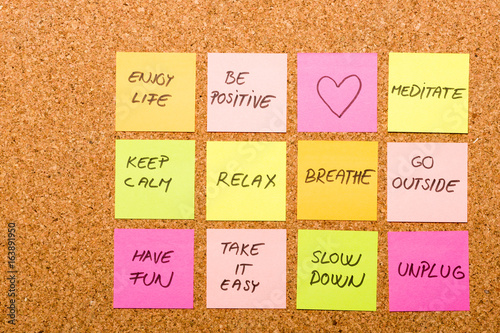 ENJOY
LIFE
BE
POSITIVE
MEDITATE
KEEP
CALM
RELAX
BREATHE
GO
OUTSIDE
HAVE
FUN
TAKE
IT
EASY
SLOW
DOWN
UNPLUG
163891950